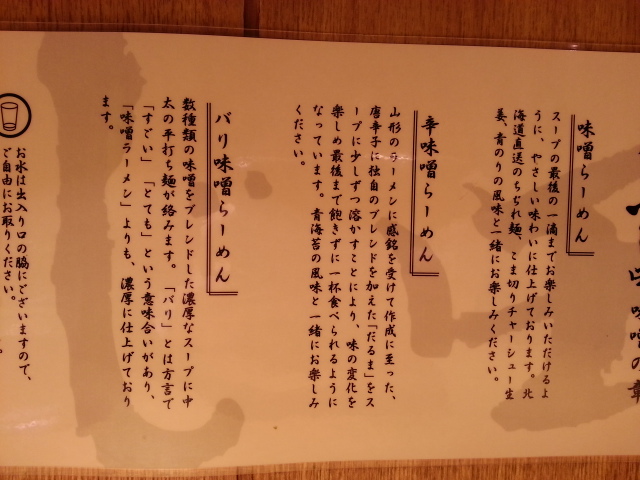 味噌の章
味噌らーめん
スープの最後の一滴までお楽しみいただけるよ
うに、やさしい味わいに仕上げております。北
海道直送のちぢれ麺、こま切りチャーシュー生
姜、青のりの風味と一緒にお楽しみください。
辛味噌らーめん
山形のラーメンに感銘を受けて作成に至った、
唐辛子に独自のブレンドを加えた「だるま」をス
ープに少しずつ溶かすことにより、味の変化を
楽しめ最後まで飽きずに一杯食べられるように
なっています。青海苔の風味と一緒にお楽しみ
ください。
バリ味噌らーめん
数種類の味噌をブレンドした濃厚なスープに中
太の平打ち麺が絡みます。「バリ」とは方言で
「すごい」「とても」という意味合いがあり、
「味噌ラーメン」よりも、濃厚に仕上げており
ます。
お水は出入り口の脇にございますので、
ご自由にお取りください。